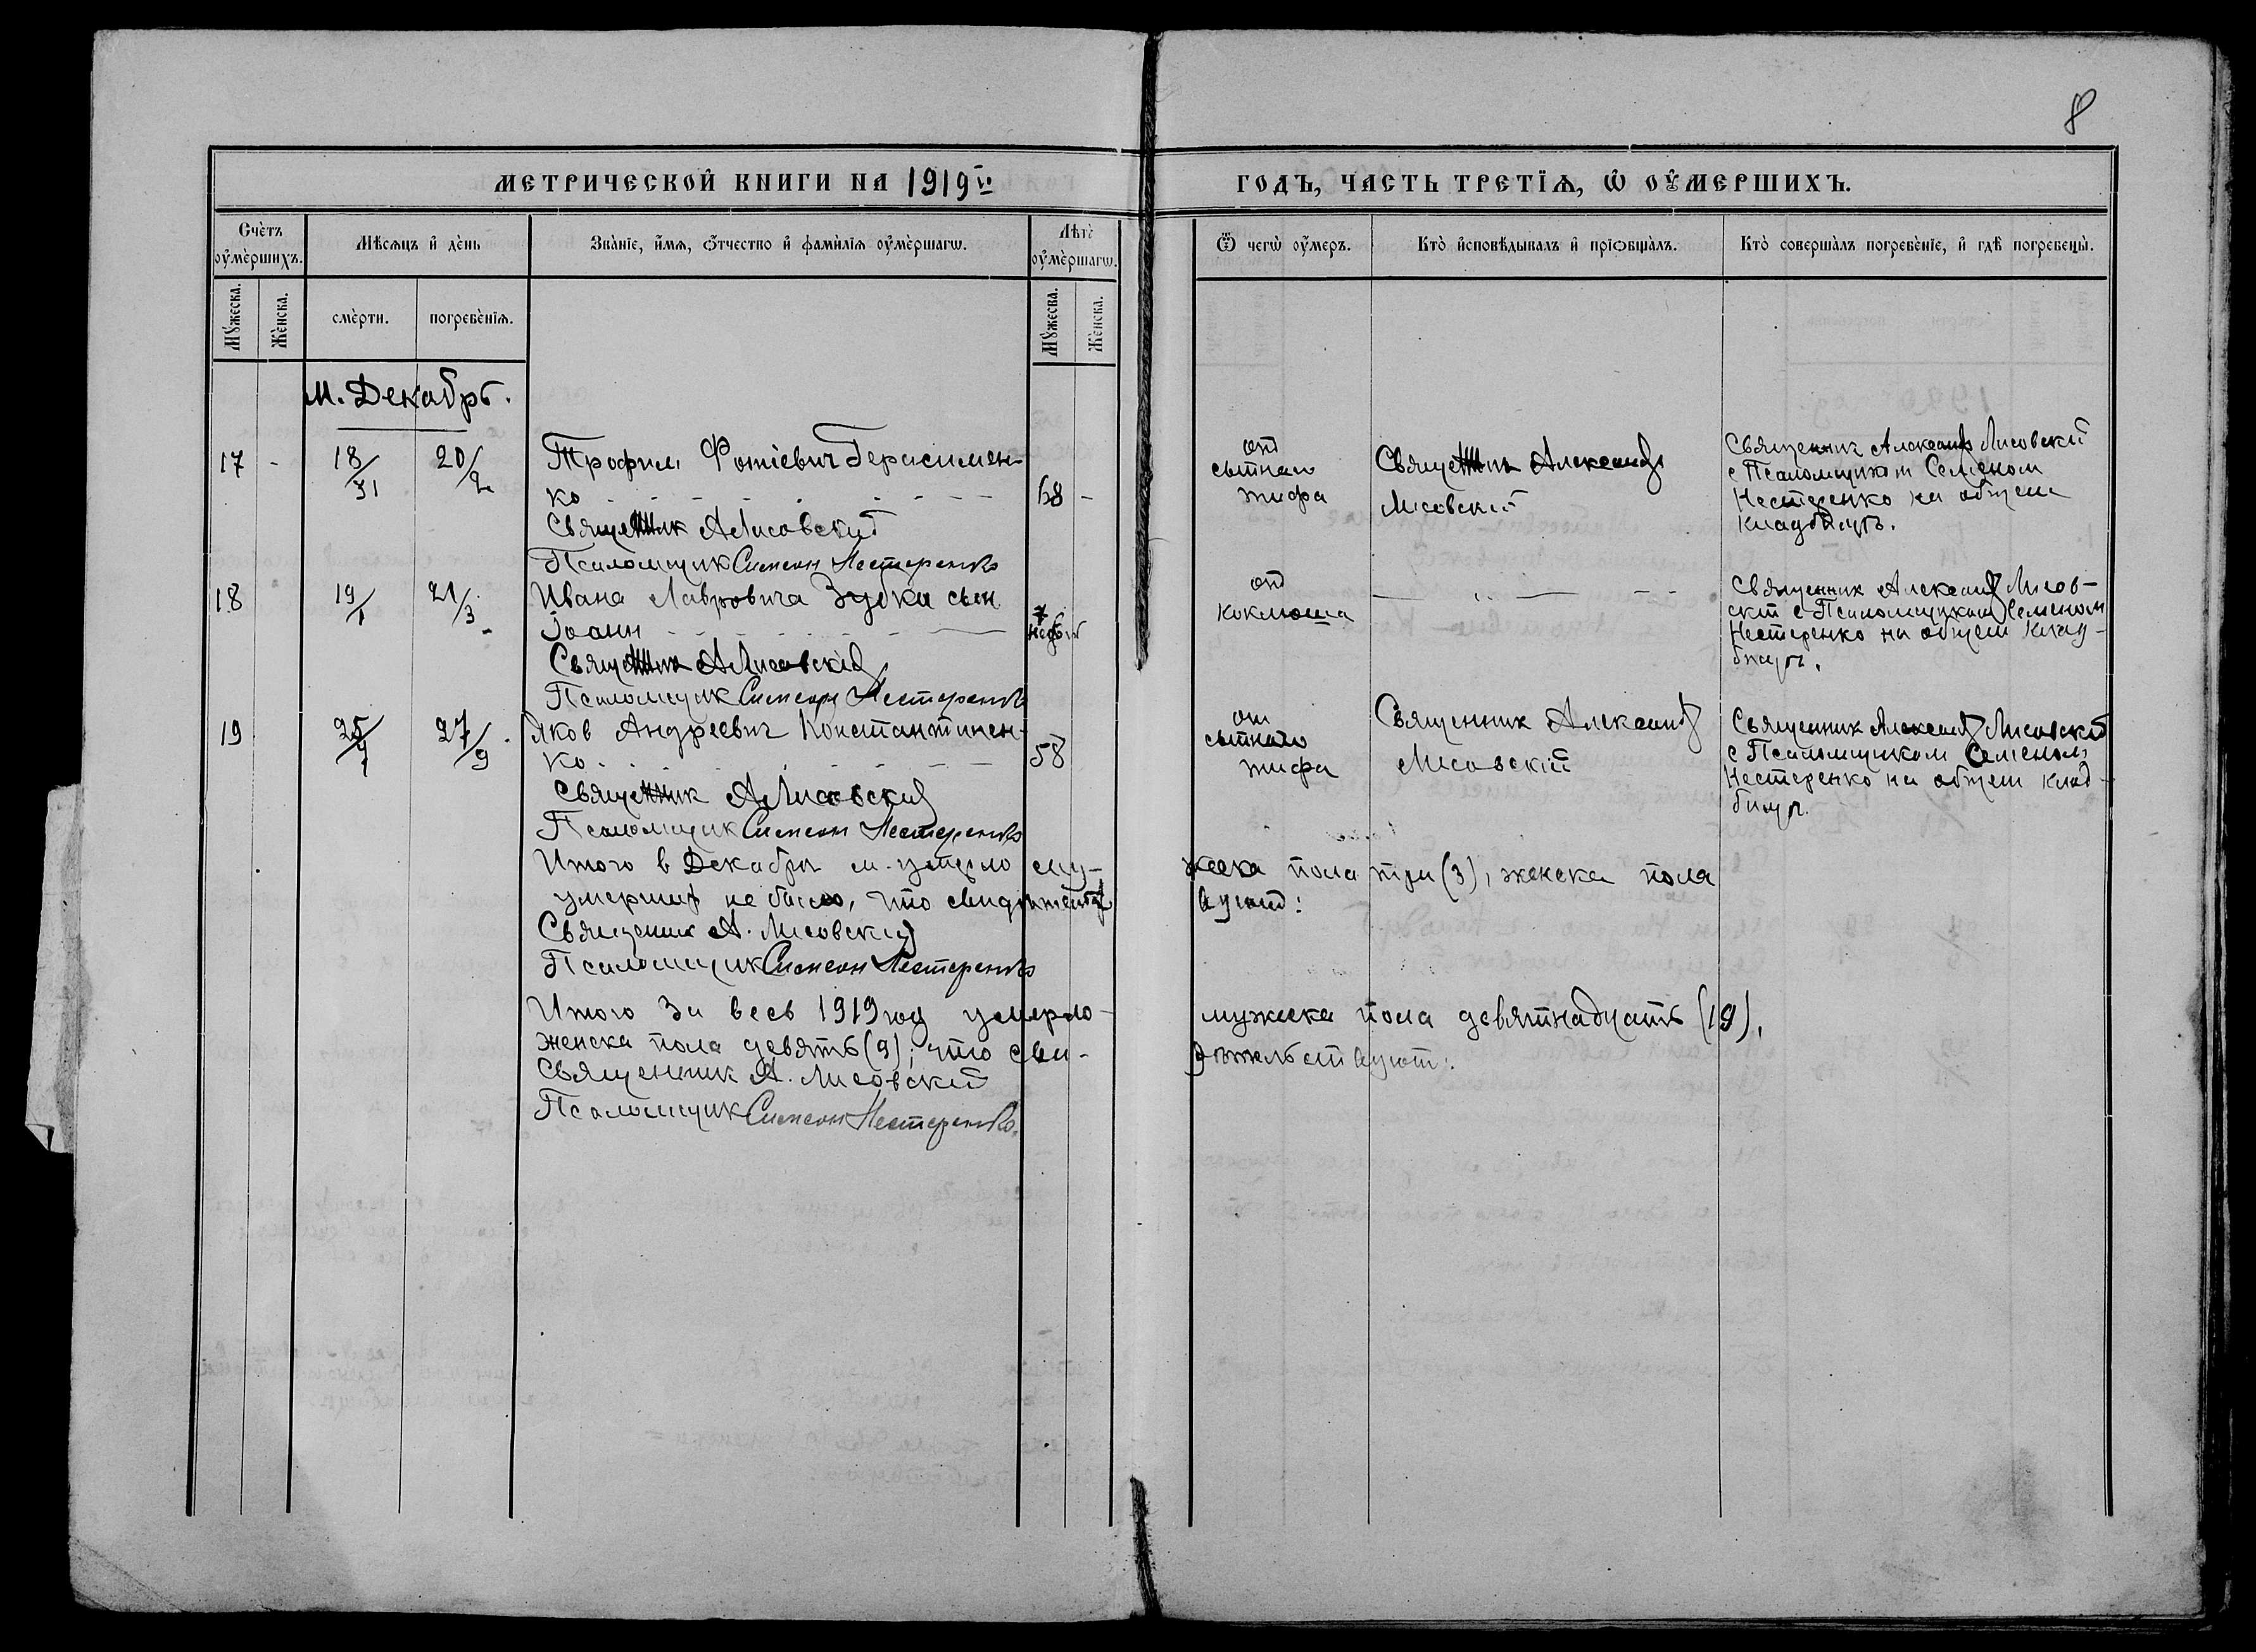 8
МЕТРИЧЕСКОЙ КНИГИ НА 1919й ГОДЪ, ЧАСТЬ ТРЕТІѦ, Ѡ ОУМЕРШИХЪ.
Счѐтъ оумѐршихъ.
Мѣсѧцъ и҆ дѐнь
Звàніе, и҆́мѧ, ѻ҆́тчество и҆ фами́лїѧ оумѐршагѡ.
Лѣтѐ оумѐршагѡ.
Ѿ чегѡ̀ оу҆́меръ.
Кто̀ и҆сповѣ́дывалъ и҆ прїѡбща̀лъ.
Кто̀ соверша̀лъ погребѐнїе, и҆ гдѣ̀ погребены̀.
Мꙋ́жеска.
Жѐнска.
смѐрти.
погребѐнїѧ.
Мꙋ́жеска.
Жѐнска.
М. Декабрь.
17 - 18/31 20/2 Трофим Фотіевич Герасимен-
ко 68 -
Священник АЛисовский
Псаломщик Симеон Нестеренко
от
сыпного
тифа
Священник Александр
Лисовский
Священник Александр Лисовский
с Псаломщиком Семеном
Нестеренко на общем
кладбищѣ.
18 19/1 21/3 Ивана Лавровича Зубка сын
Іоанн 7 недѣль
Священник АЛисовский
Псаломщик Симеон Нестеренко
от
коклюша
Священник Александр Лисов-
скій с Псаломщиком Семеном
Нестеренко на общем клад-
бищѣ.
19 25/7 27/9 Яков Андреевич Константинен-
ко 58
Священник АЛисовский
Псаломщик Симеон Нестеренко
от
сыпного
тифа
Священник Александр
Лисовскій
Священник Александр Лисовский
с Псаломщиком Семеном
Нестеренко на общем клад-
бищѣ.
Итого в Декабрѣ м. умерло му-
жеска пола три (3), женска пола
умерших не было, что свидѣтельст
вуют:
Священник А. Лисовский
Псаломщик Симеон Нестеренко
Итого за весь 1919 год умерло
мужеска пола девятнадцать (19),
женска пола девять (9); что сви-
дѣтельствуют:
Священник А. Лисовский
Псаломщик Симеон Нестеренко.